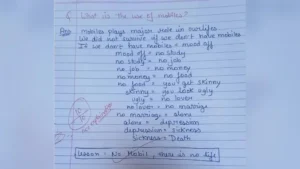 Q What is the use of mobiles?
Ans Mobiles plays major role in our lifes
We did not survive if we don't have mobiles
If we don't have mobiles = mood off
mood off = no study
no study = no job
no job = no money
no money = no food
no food = you get skinny
skinny = you look ugly
ugly = no lover
no lover = no matriage
no marriage = alone
alone = depression
depression = sickness
sickness = Death
No Mobil, there is no life